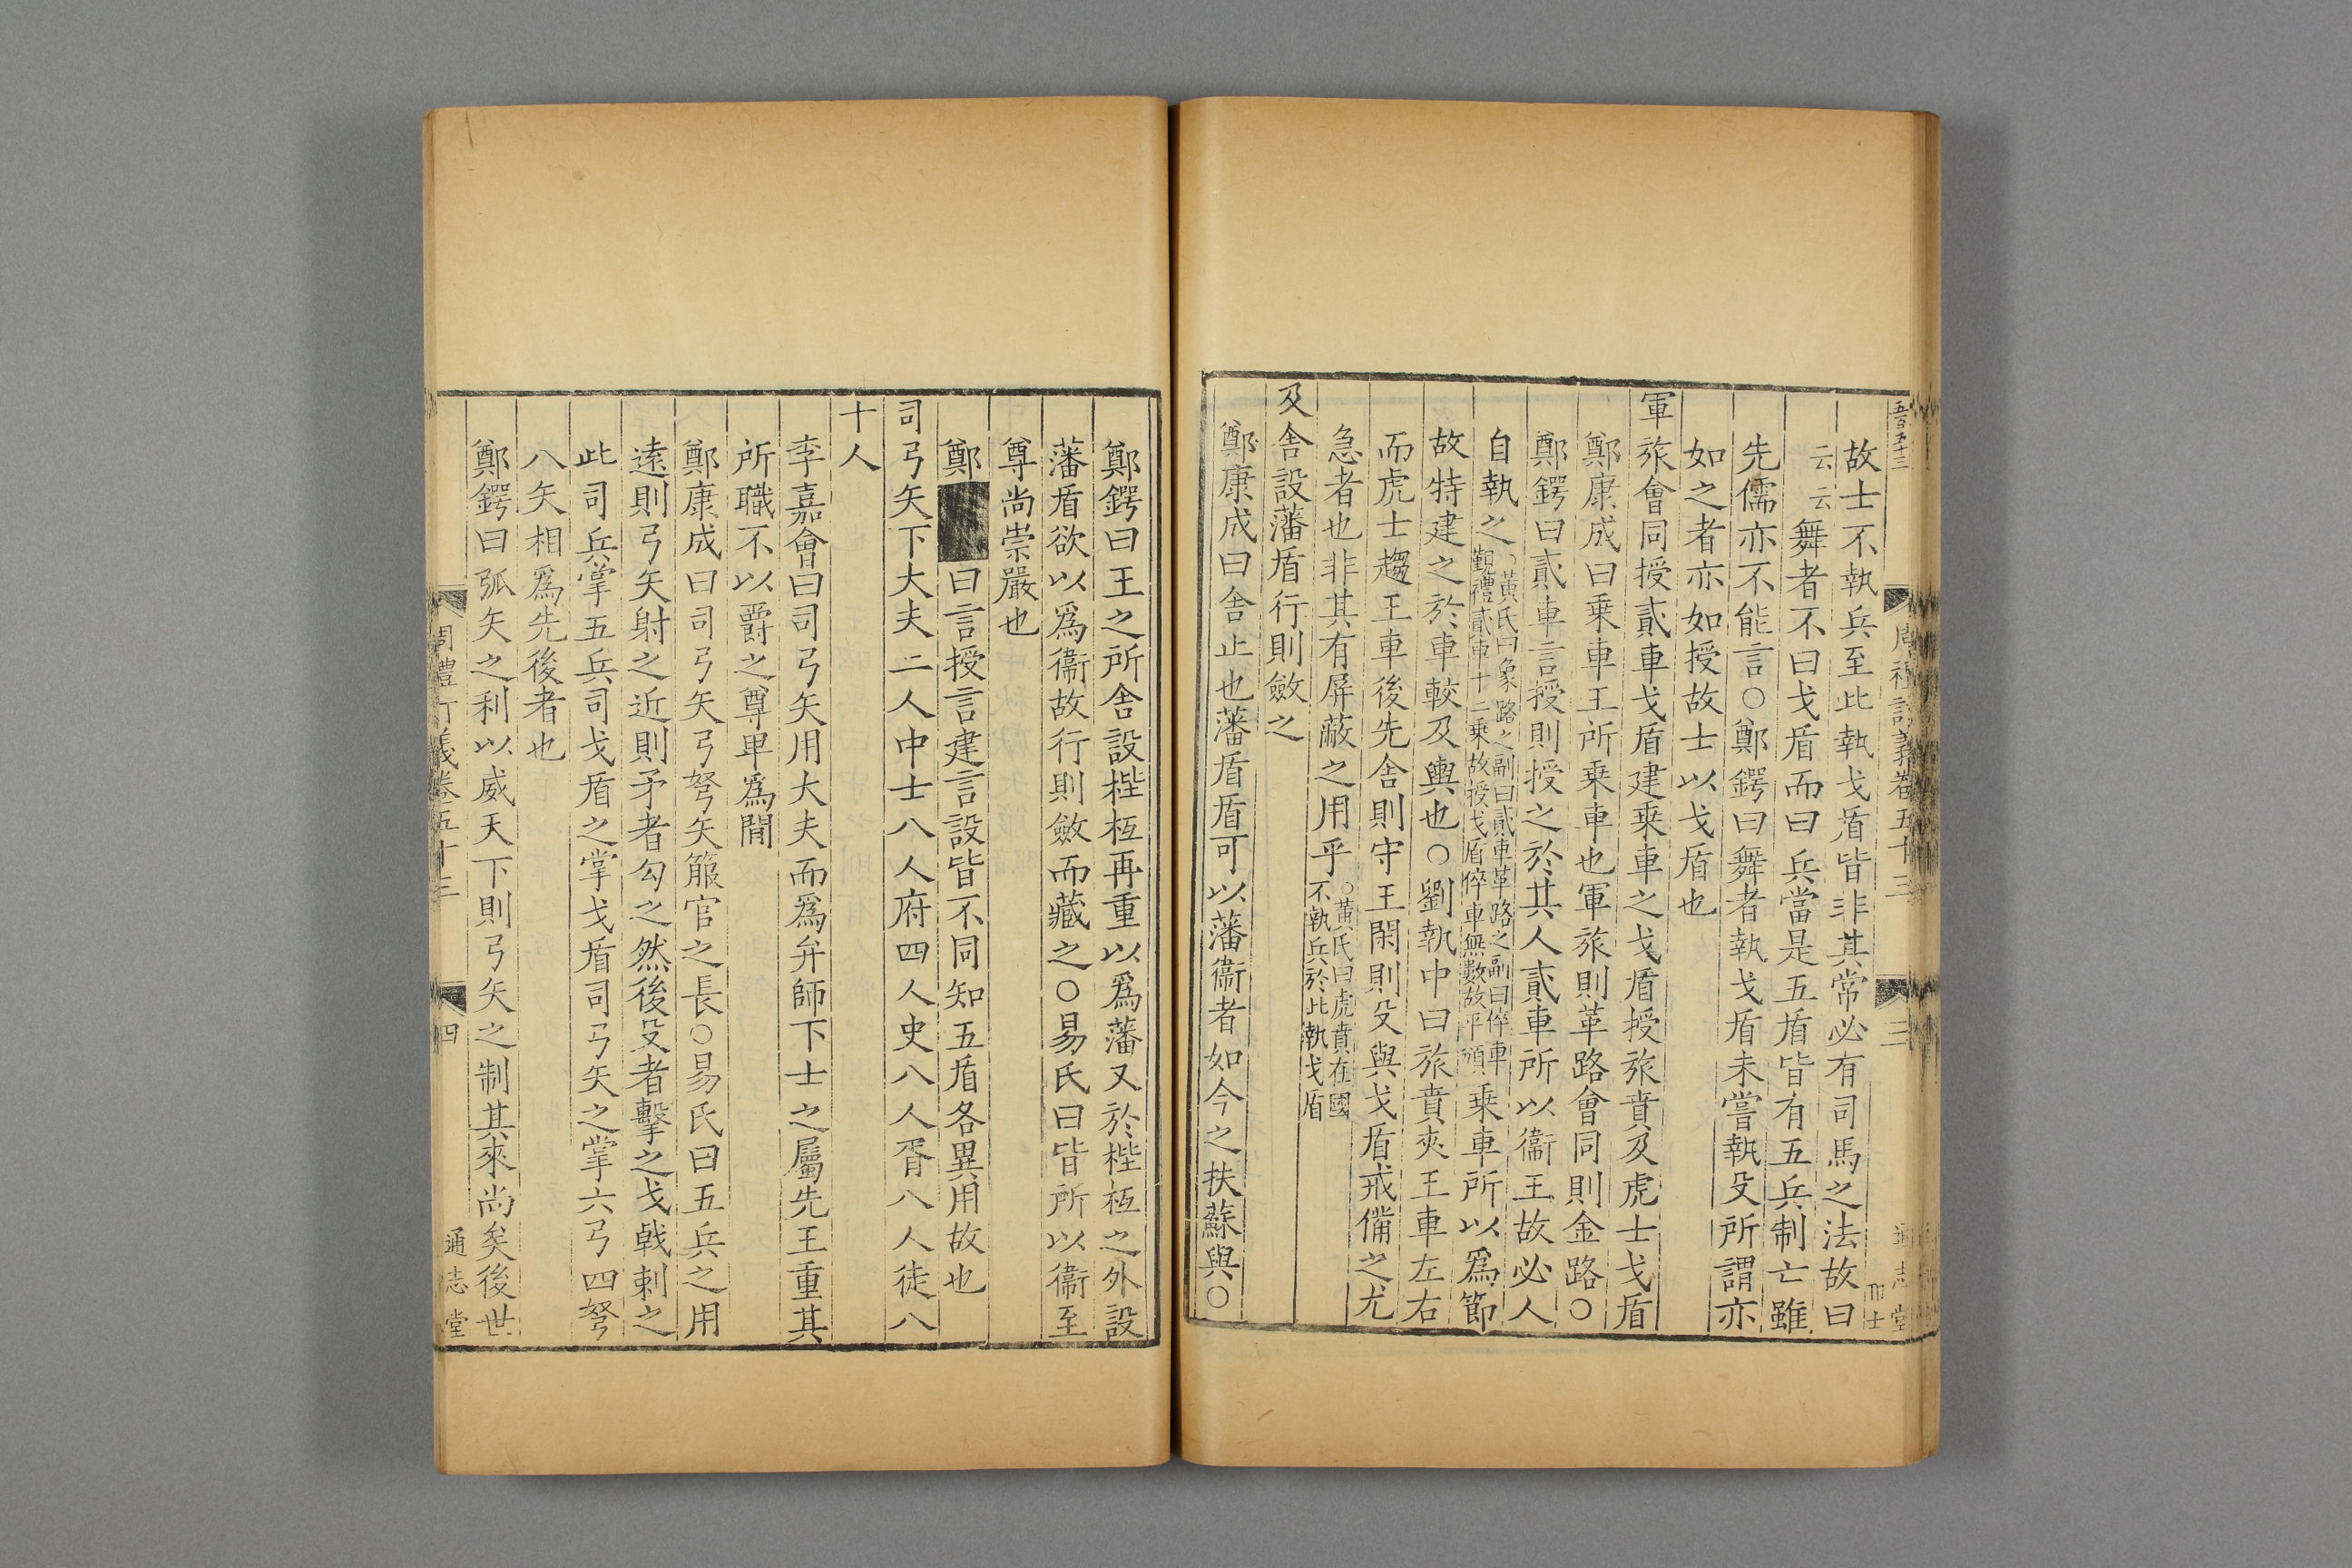 五百五十三
周禮訂義卷五十三
三
通志堂
故士不執兵至此執戈盾皆非其常必有司馬之法故曰
云云舞者不曰戈盾而曰兵當是五盾皆有五兵制亡雖
先儒亦不能言○鄭鍔曰舞者執戈盾未嘗執殳所謂亦
如之者亦如授故士以戈盾也
軍旅會同授貳車戈盾建乘車之戈盾授旅賁及虎士戈盾
鄭康成曰乘車王所乘車也軍旅則革路會同則金路○
鄭鍔曰貳車言授則授之於其人貳車所以衞王故必人
自執之○黃氏曰象路之副曰貳車革路之副曰倅車覲禮貳車十二乗故授戈盾倅車無數故平頒乗車所以爲節
故特建之於車較及輿也○劉執中曰旅賁夾王車左右
而虎士趨王車後先舍則守王閑則殳與戈盾戒備之尤
急者也非其有屏蔽之用乎○黃氏曰虎賁在國不執兵於此執戈盾
及舍設藩盾行則斂之
鄭康成曰舍止也藩盾盾可以藩衞者如今之扶蘇與○
鄭鍔曰王之所舍設梐枑再重以爲藩又於梐枑之外設
藩盾欲以爲衞故行則斂而藏之○易氏曰皆所以衞至
尊尚崇嚴也
鄭曰言授言建言設皆不同知五盾各異用故也
司弓矢下大夫二人中士八人府四人史八人胥八人徒八
十人
李嘉會曰司弓矢用大夫而爲弁師下士之屬先王重其
所職不以爵之尊卑爲閒
鄭康成曰司弓矢弓弩矢箙官之長○易氏曰五兵之用
遠則弓矢射之近則矛者勾之然後殳者擊之戈戟刺之
此司兵掌五兵司戈盾之掌戈盾司弓矢之掌六弓四弩
八矢相爲先後者也
鄭鍔曰弧矢之利以威天下則弓矢之制其來尚矣後世
周禮訂義卷五十三
四
通志堂